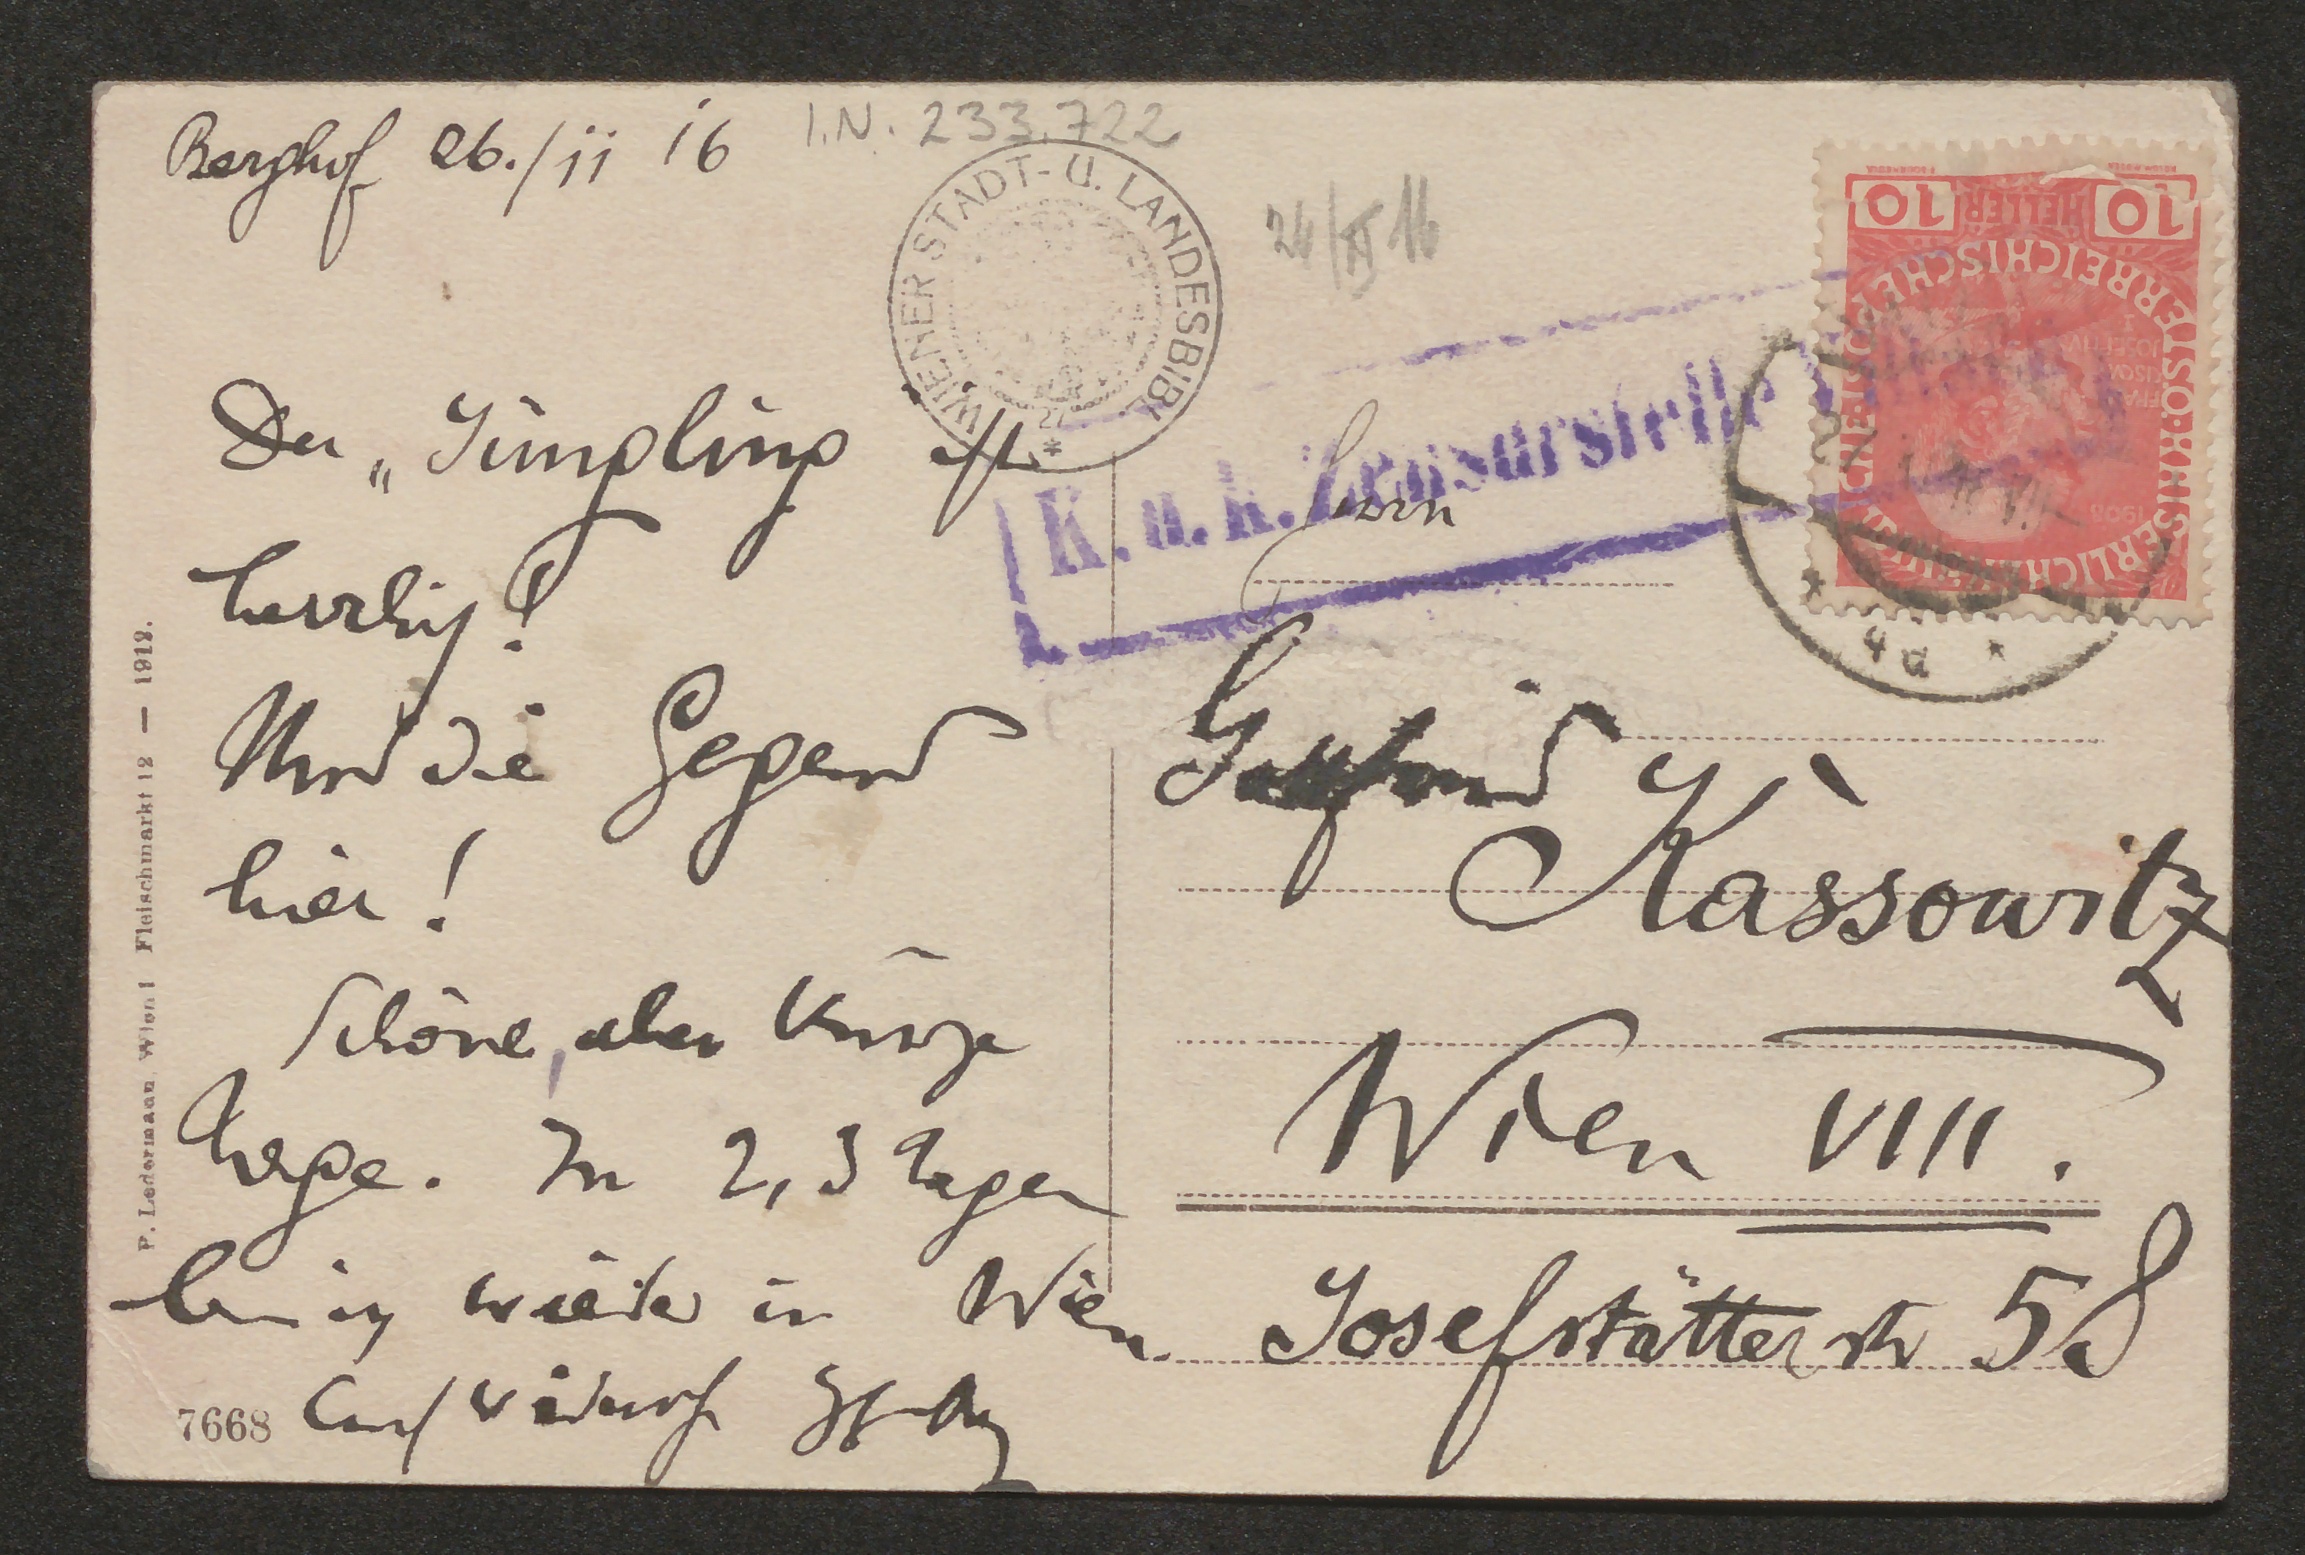 Berghof 26./11 16
I.N. 233.722
WIENER STADT- U. LANDESBIBL.
26/XI 16
Der „Jüngling ist
herrlich!
Und die Gegend
hier!
Schöne, aber kurze
Tage. In 2, 3 Tagen
bin ich wieder in Wien.
Auf Wiedersehn
7668
P. Ledermann, Wien I Fleischmarkt 12 — 1912.
K. u. k. Zensurstelle
10 HELLER 10
KAISERLICHE KÖNIGLICHE ÖSTERREICHISCHE POST
1908
Herrn
Gottfried
Kassowitz
Wien VIII.
Josefstätterstr 58